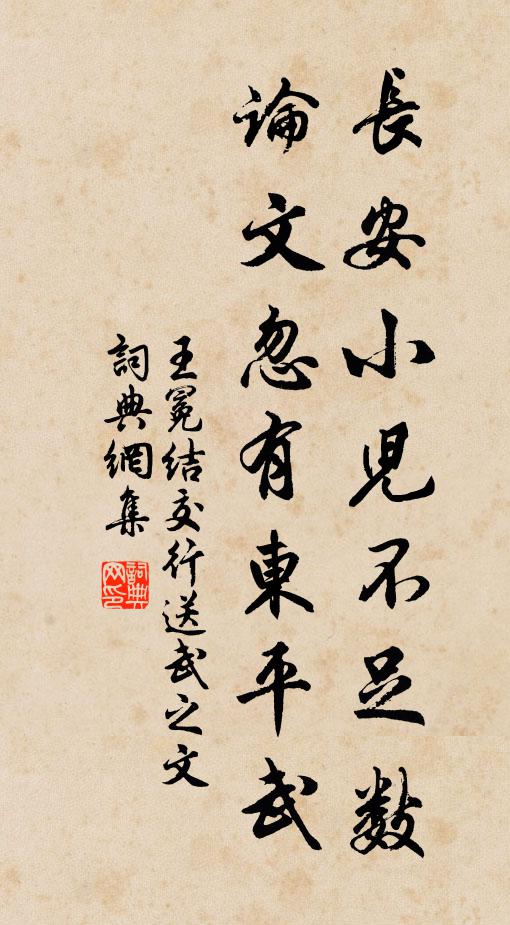 長安小児不足数
論文忽有東平武
王冕结交行送武之文
詞典網集
詞典网印